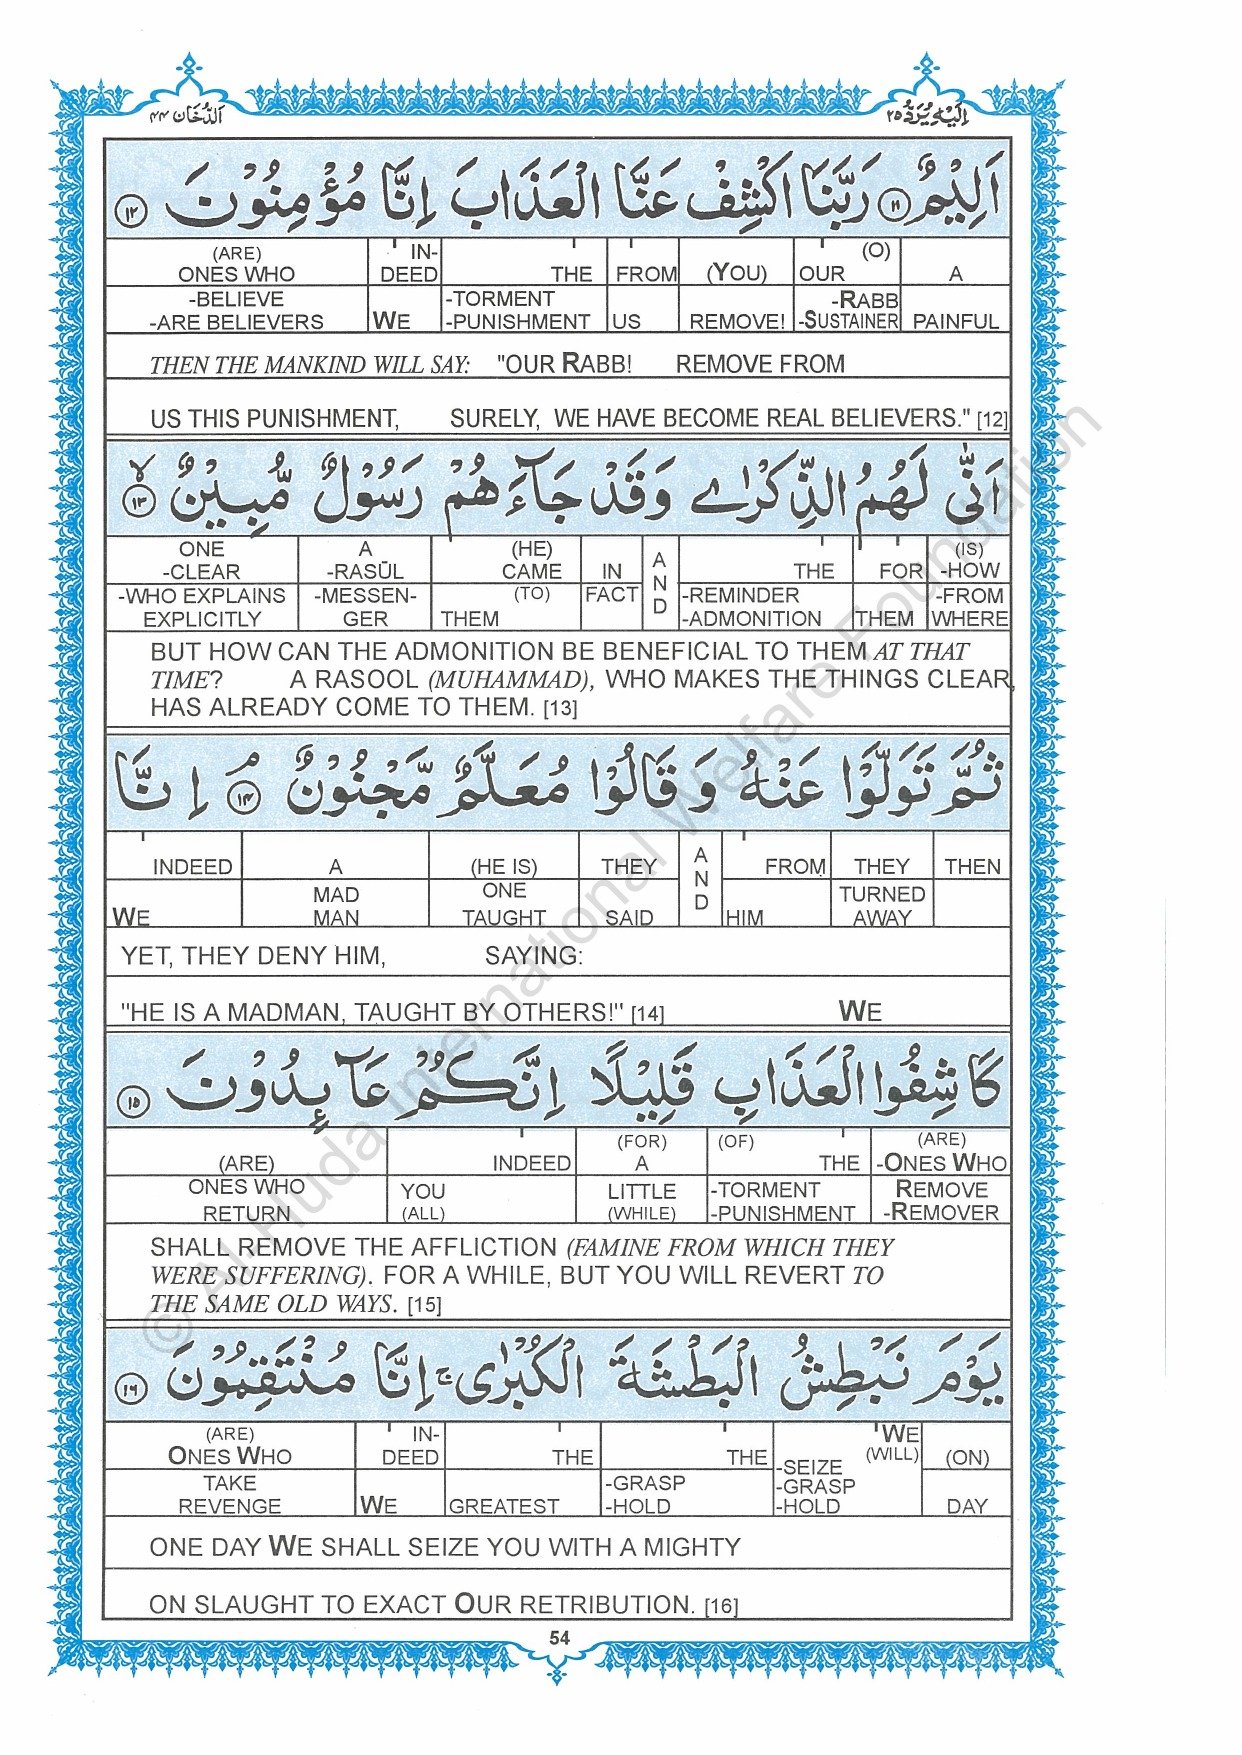 اَلدُّخَان ٤٤
اِلَيْهِ يُرَدُّ ٢٥
اَلِيْمٌ ١١ رَبَّنَا اكْشِفْ عَنَّا الْعَذَابَ اِنَّا مُؤْمِنُوْنَ ١٢
(ARE) IN- (O)
ONES WHO DEED THE FROM (YOU) OUR A
-BELIEVE -TORMENT -RABB
-ARE BELIEVERS WE -PUNISHMENT US REMOVE! -SUSTAINER PAINFUL
THEN THE MANKIND WILL SAY: "OUR RABB! REMOVE FROM
US THIS PUNISHMENT, SURELY, WE HAVE BECOME REAL BELIEVERS." [12]
اَنّٰى لَهُمُ الذِّكْرٰى وَقَدْ جَآءَهُمْ رَسُوْلٌ مُّبِيْنٌ ١٣ لا
ONE A (HE) A (IS)
-CLEAR -RASŪL CAME IN N THE FOR -HOW
-WHO EXPLAINS -MESSEN- (TO) FACT D -REMINDER -FROM
EXPLICITLY GER THEM -ADMONITION THEM WHERE
BUT HOW CAN THE ADMONITION BE BENEFICIAL TO THEM AT THAT
TIME? A RASOOL (MUHAMMAD), WHO MAKES THE THINGS CLEAR,
HAS ALREADY COME TO THEM. [13]
ثُمَّ تَوَلَّوْا عَنْهُ وَقَالُوْا مُعَلَّمٌ مَّجْنُوْنٌ ١٤ م اِنَّا
INDEED A (HE IS) THEY A FROM THEY THEN
MAD ONE N TURNED
WE MAN TAUGHT SAID D HIM AWAY
YET, THEY DENY HIM, SAYING:
"HE IS A MADMAN, TAUGHT BY OTHERS!" [14] WE
كَاشِفُوا الْعَذَابِ قَلِيْلًا اِنَّكُمْ عَآئِدُوْنَ ١٥
(FOR) (OF) (ARE)
(ARE) INDEED A THE -ONES WHO
ONES WHO YOU LITTLE -TORMENT REMOVE
RETURN (ALL) (WHILE) -PUNISHMENT -REMOVER
SHALL REMOVE THE AFFLICTION (FAMINE FROM WHICH THEY
WERE SUFFERING). FOR A WHILE, BUT YOU WILL REVERT TO
THE SAME OLD WAYS. [15]
يَوْمَ نَبْطِشُ الْبَطْشَةَ الْكُبْرٰى ج اِنَّا مُنْتَقِمُوْنَ ١٦
(ARE) IN- WE
ONES WHO DEED THE THE -SEIZE (WILL) (ON)
TAKE -GRASP -GRASP
REVENGE WE GREATEST -HOLD -HOLD DAY
ONE DAY WE SHALL SEIZE YOU WITH A MIGHTY
ON SLAUGHT TO EXACT OUR RETRIBUTION. [16]
54
© Al-Huda International Welfare Foundation